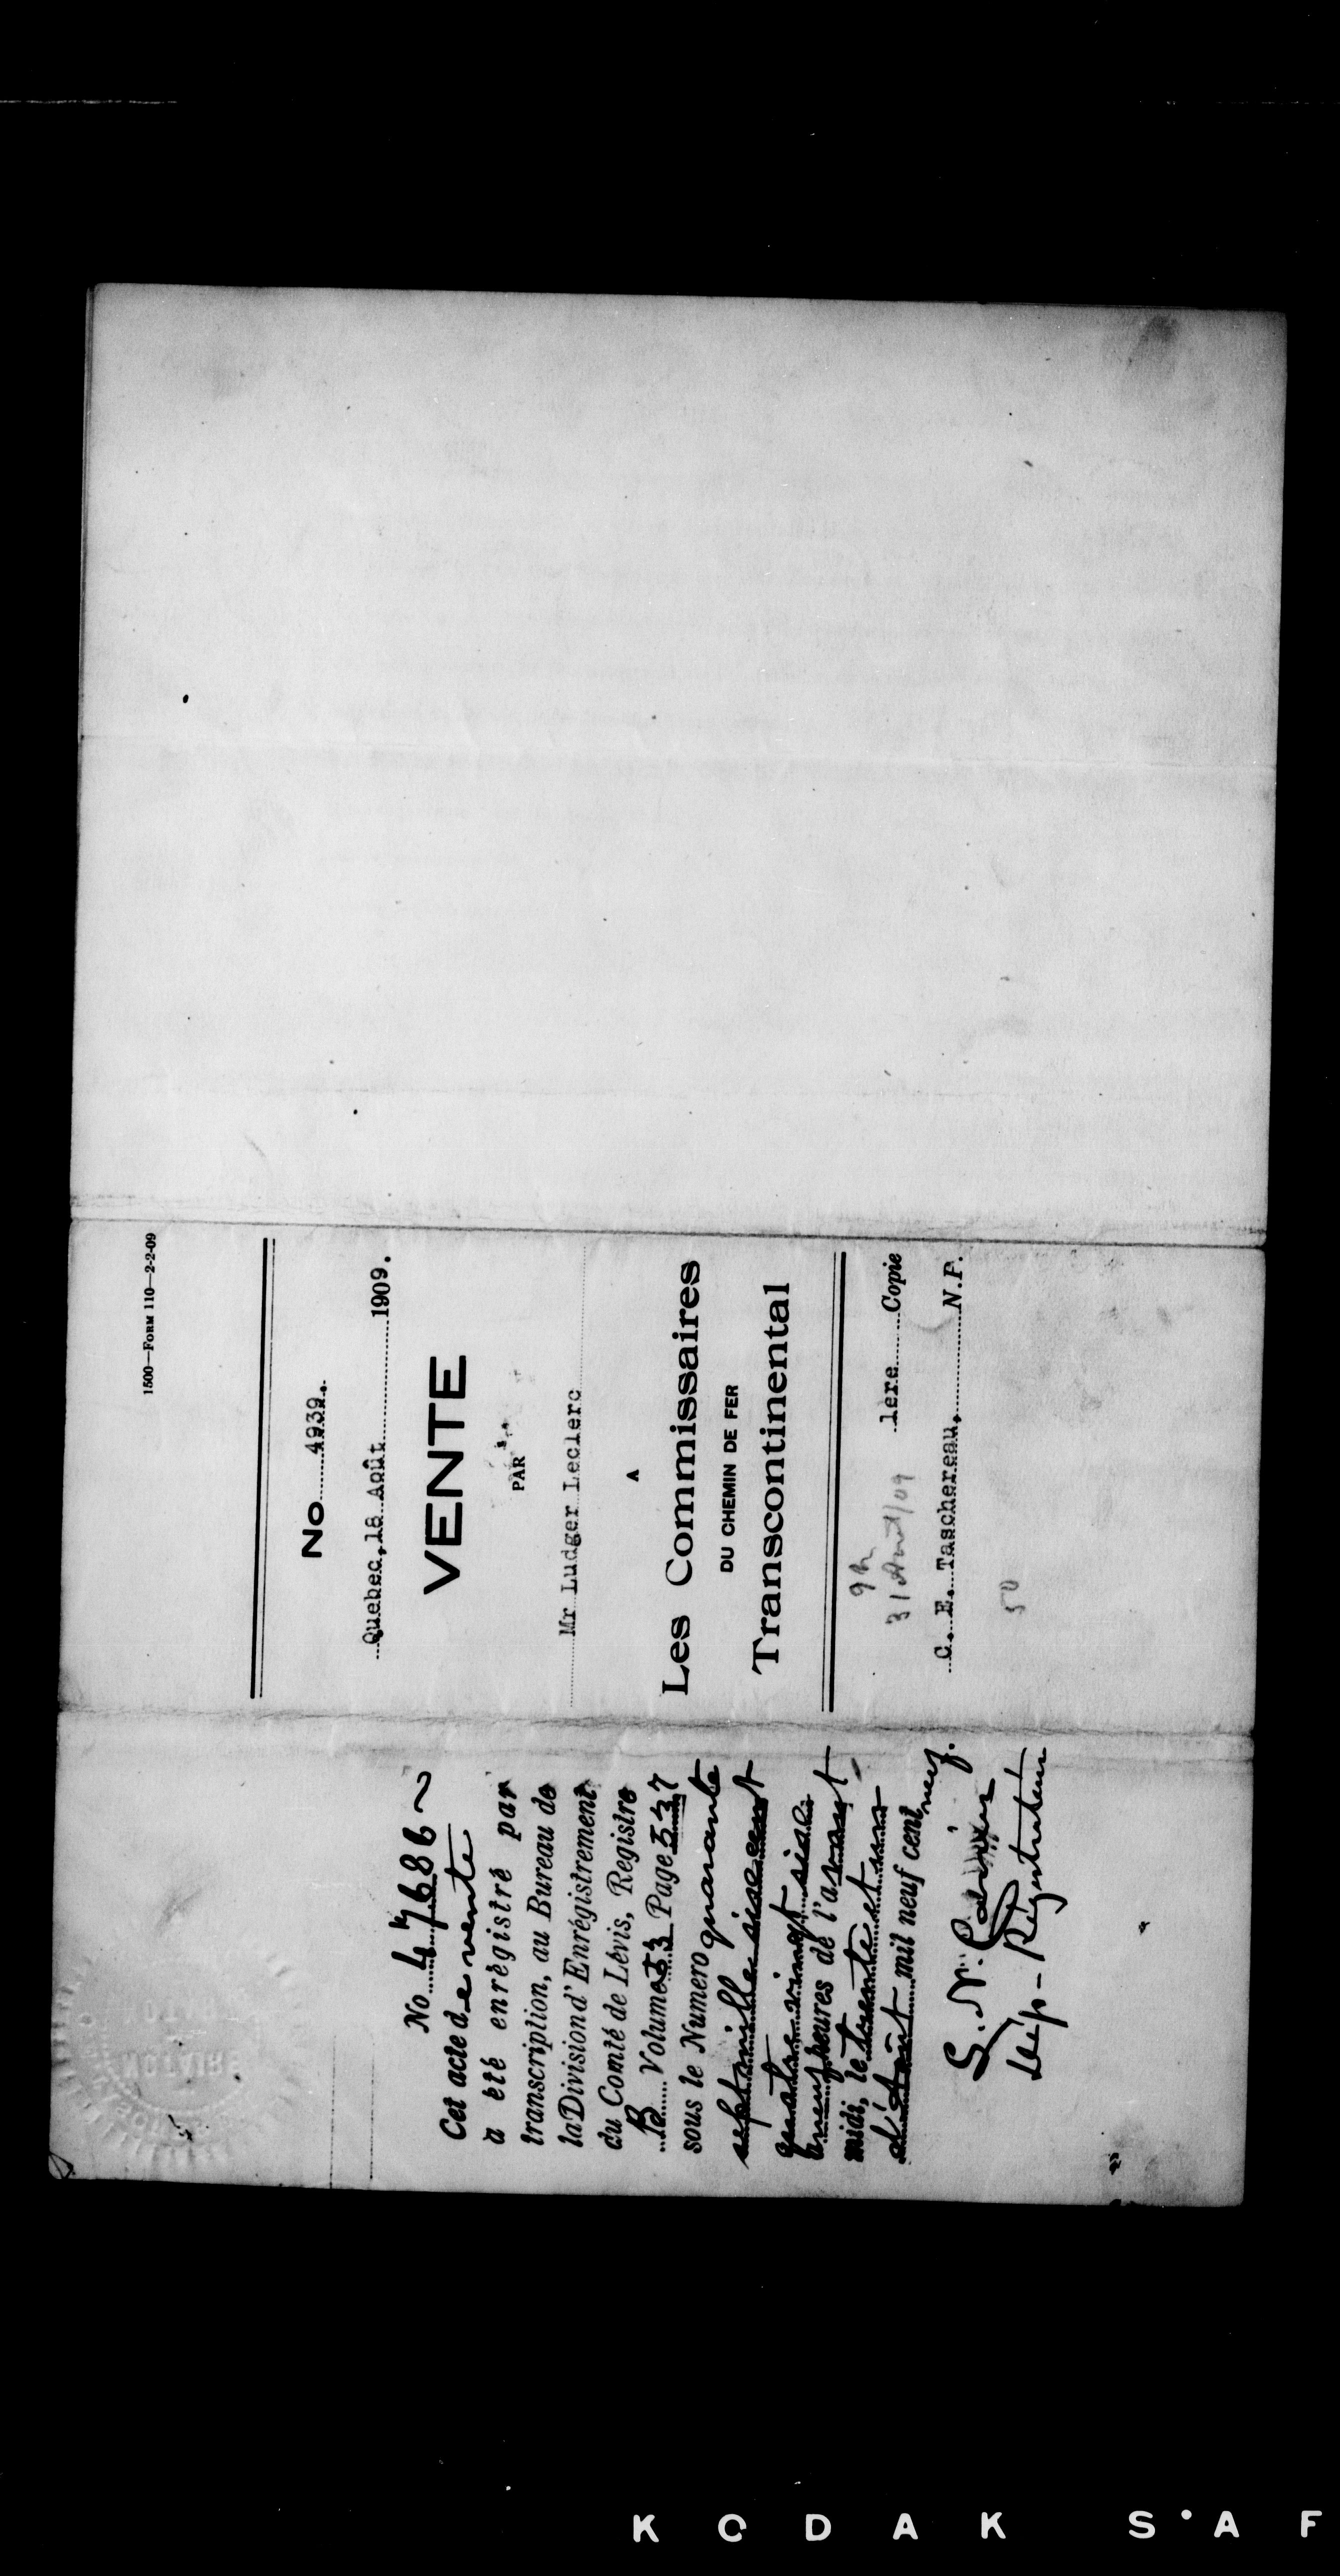 1500—FORM 110—2-2-09
No 4939.
Quebec, 18 Août 1909.
VENTE
PAR
Mr Ludger Leclerc
A
Les Commissaires
DU CHEMIN DE FER
Transcontinental
1ère Copie
9 h
31 Août/09
C. E. Taschereau, N.P.
50
No 47686
Cet acte de vente
a été enrégistré par
transcription, au Bureau de
la Division d'Enrégistrement
du Comté de Lévis, Registre
B Volume 53 Page 537
sous le Numero quarante
sept mille six cent
quatre vingt six à
neuf heures de l'avant-
midi, le trente et un
d'Août mil neuf cent neuf.
Dép-Régistrateur
NOTAIRE
KODAK S·AF